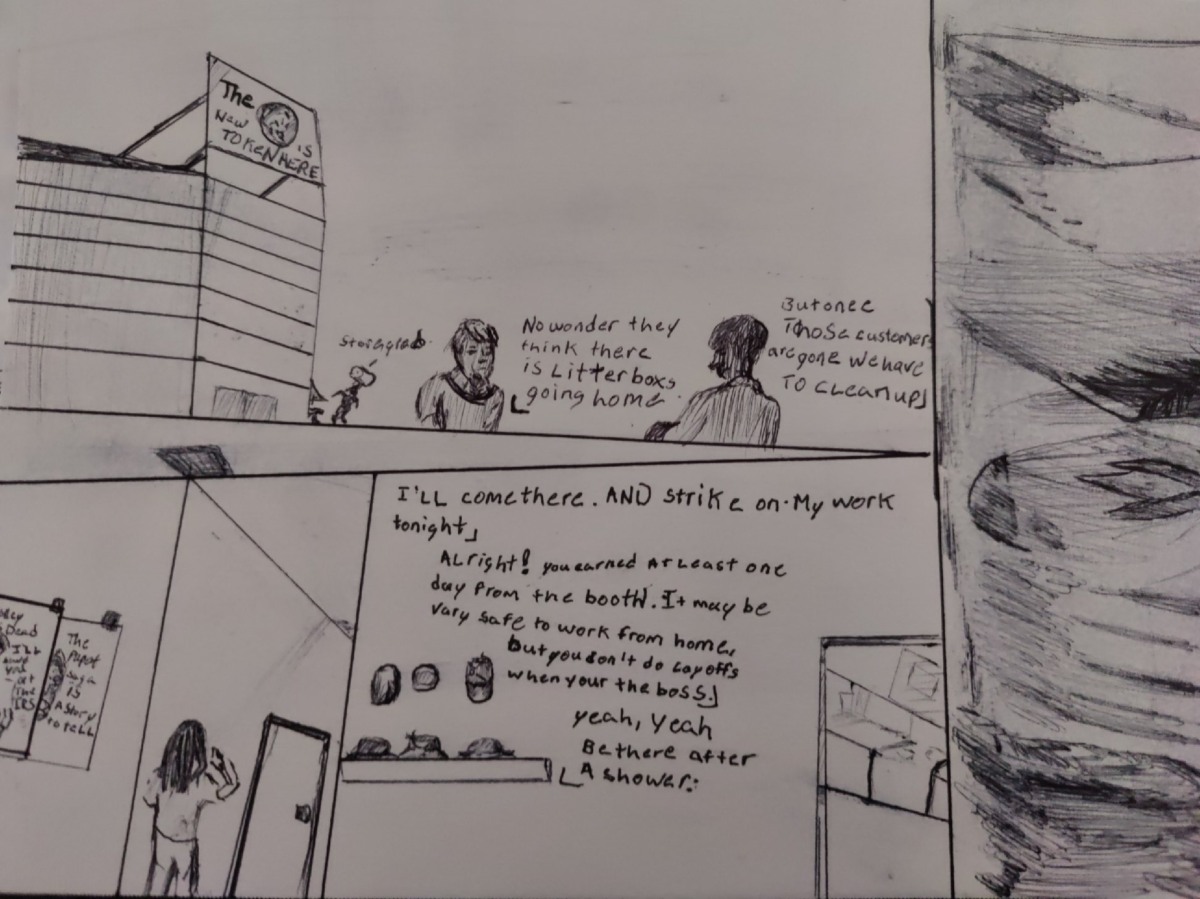 The
New
IS
TOKEN HERE
No wonder they
think there
is Litter boxs
going home.
But once
Those customers
are gone we have
TO CLEAN up
I'LL come there. AND strike on. My work
tonight
ALright! you earned AT Least one
day from the booth. It may be
vary safe to work from home,
but you don't do Layoffs
when your the boss.
yeah, yeah
Be there after
A shower.
Dead
at
The
IRS
The
Is
A Story
to tell